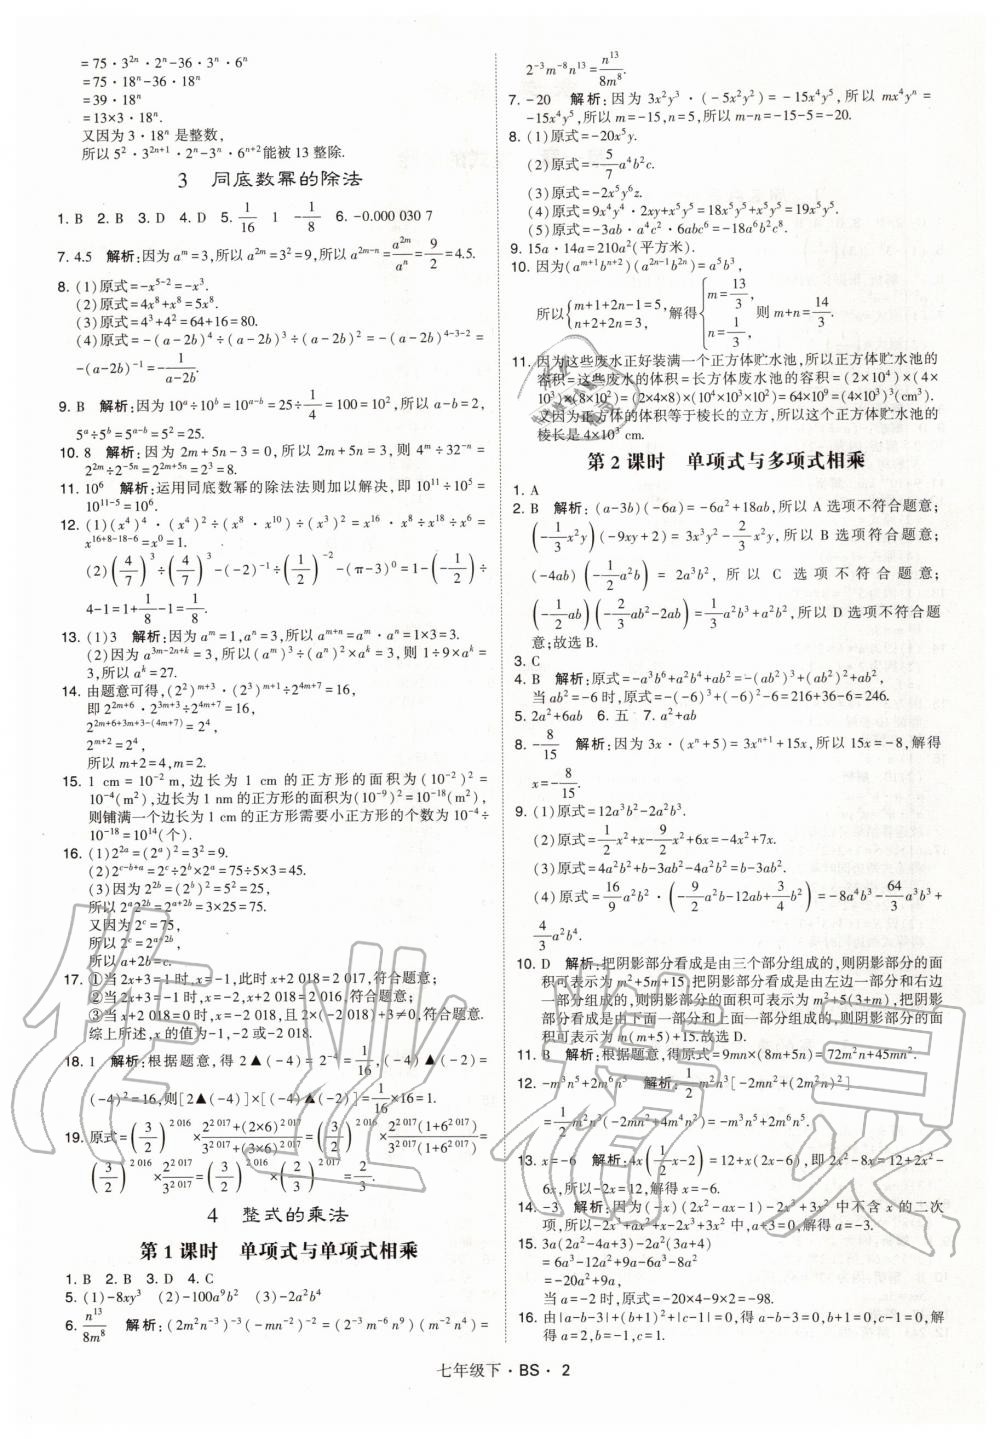 =75·3²ⁿ·2ⁿ-36·3ⁿ·6ⁿ
=75·18ⁿ-36·18ⁿ
=39·18ⁿ
=13×3·18ⁿ.
又因为 3·18ⁿ 是整数,
所以 5²·3²ⁿ⁺¹·2ⁿ-3ⁿ·6ⁿ⁺²能被 13 整除.
3 同底数幂的除法
1. B 2. B 3. D 4. D 5. 1/16 1 -1/8 6. -0.000 030 7
7. 4.5 解析:因为 aᵐ=3,所以 a²ᵐ=3²=9,所以 a²ᵐ⁻ⁿ=a²ᵐ/aⁿ=9/2=4.5.
8. (1)原式=-x⁵⁻²=-x³.
(2)原式=4x⁸+x⁸=5x⁸.
(3)原式=4³+4²=64+16=80.
(4)原式=-(a-2b)⁴÷(a-2b)³÷(a-2b)²=-(a-2b)⁴⁻³⁻²=
-(a-2b)⁻¹=-1/(a-2b).
9. B 解析:因为 10ᵃ÷10ᵇ=10ᵃ⁻ᵇ=25÷1/4=100=10²,所以 a-b=2,
5ᵃ÷5ᵇ=5ᵃ⁻ᵇ=5²=25.
10. 8 解析:因为 2m+5n-3=0,所以 2m+5n=3,则 4ᵐ÷32⁻ⁿ=
2²ᵐ÷2⁻⁵ⁿ=2²ᵐ⁺⁵ⁿ=2³=8.
11. 10⁶ 解析:运用同底数幂的除法法则加以解决,即 10¹¹÷10⁵=
10¹¹⁻⁵=10⁶.
12. (1)(x⁴)⁴·(x⁴)²÷(x⁸·x¹⁰)÷(x³)²=x¹⁶·x⁸÷x¹⁸÷x⁶=
x¹⁶⁺⁸⁻¹⁸⁻⁶=x⁰=1.
(2)(4/7)³÷(4/7)³-(-2)⁻¹÷(1/2)⁻²-(π-3)⁰=1-(-1/2)÷
4-1=1+1/8-1=1/8.
13. (1)3 解析:因为 aᵐ=1,aⁿ=3,所以 aᵐ⁺ⁿ=aᵐ·aⁿ=1×3=3.
(2)因为 a³ᵐ⁻²ⁿ⁺ᵏ=3,所以(aᵐ)³÷(aⁿ)²×aᵏ=3,则 1÷9×aᵏ=
3,所以 aᵏ=27.
14. 由题意可得,(2²)ᵐ⁺³·(2³)ᵐ⁺¹÷2⁴ᵐ⁺⁷=16,
即 2²ᵐ⁺⁶·2³ᵐ⁺³÷2⁴ᵐ⁺⁷=16,
2²ᵐ⁺⁶⁺³ᵐ⁺³⁻⁽⁴ᵐ⁺⁷⁾=2⁴,
2ᵐ⁺²=2⁴,
所以 m+2=4,m=2.
15. 1 cm=10⁻² m,边长为 1 cm 的正方形的面积为(10⁻²)²=
10⁻⁴(m²),边长为 1 nm 的正方形的面积为(10⁻⁹)²=10⁻¹⁸(m²),
则铺满一个边长为 1 cm 的正方形需要小正方形的个数为 10⁻⁴÷
10⁻¹⁸=10¹⁴(个).
16. (1)2²ᵃ=(2ᵃ)²=3²=9.
(2)2ᶜ⁻ᵇ⁺ᵃ=2ᶜ÷2ᵇ×2ᵃ=75÷5×3=45.
(3)因为 2²ᵇ=(2ᵇ)²=5²=25,
所以 2ᵃ2²ᵇ=2ᵃ⁺²ᵇ=3×25=75.
又因为 2ᶜ=75,
所以 2ᶜ=2ᵃ⁺²ᵇ,
所以 a+2b=c.
17. ①当 2x+3=1 时,x=-1,此时 x+2 018=2 017,符合题意;
②当 2x+3=-1 时,x=-2,x+2 018=2 016,符合题意;
③当 x+2 018=0 时,x=-2 018,且 2×(-2 018)+3≠0,符合题意.
综上所述,x 的值为-1,-2 或-2 018.
18. 1 解析:根据题意,得 2▲(-4)=2⁻⁴=1/16,(-4)▲(-2)=
(-4)²=16,则[2▲(-4)]×[(-4)▲(-2)]=1/16×16=1.
19. 原式=(3/2)²⁰¹⁶×(2²⁰¹⁷+(2×6)²⁰¹⁷)/(3²⁰¹⁷+(3×6)²⁰¹⁷)=(3/2)²⁰¹⁶×2²⁰¹⁷(1+6²⁰¹⁷)/3²⁰¹⁷(1+6²⁰¹⁷)=
(3/2)²⁰¹⁶×2²⁰¹⁷/3²⁰¹⁷=(3/2)²⁰¹⁶×(2/3)²⁰¹⁷=2/3.
4 整式的乘法
第 1 课时 单项式与单项式相乘
1. B 2. B 3. D 4. C
5. (1)-8xy³ (2)-100a⁹b² (3)-2a²b⁴
6. n¹³/8m⁸ 解析:(2m²n⁻³)⁻³(-mn⁻²)⁻²=(2⁻³m⁻⁶n⁹)(m⁻²n⁴)=
2⁻³m⁻⁸n¹³=n¹³/8m⁸.
7. -20 解析:因为 3x²y³·(-5x²y²)=-15x⁴y⁵,所以 mx⁴yⁿ=
-15x⁴y⁵,所以 m=-15,n=5,所以 m-n=-15-5=-20.
8. (1)原式=-20x⁵y.
(2)原式=-5/7a⁴b²c.
(3)原式=-2x⁵y⁶z.
(4)原式=9x⁴y⁴·2xy+x⁵y⁵=18x⁵y⁵+x⁵y⁵=19x⁵y⁵.
(5)原式=-3ab·a⁴c²·6abc⁶=-18a⁶b²c⁸.
9. 15a·14a=210a²(平方米).
10. 因为(aᵐ⁺¹bⁿ⁺²)(a²ⁿ⁻¹b²ⁿ)=a⁵b³,
所以{m+1+2n-1=5, n+2+2n=3,解得{m=13/3, n=1/3,则 m+n=14/3.
11. 因为这些废水正好装满一个正方体贮水池,所以正方体贮水池的
容积=这些废水的体积=长方体废水池的容积=(2×10⁴)×(4×
10³)×(8×10²)=(2×4×8)×(10⁴×10³×10²)=64×10⁹=(4×10³)³(cm³).
又因为正方体的体积等于棱长的立方,所以这个正方体贮水池的
棱长是 4×10³ cm.
第 2 课时 单项式与多项式相乘
1. A
2. B 解析:(a-3b)(-6a)=-6a²+18ab,所以 A 选项不符合题意;
(-1/3x²y)(-9xy+2)=3x³y²-2/3x²y,所以 B 选项符合题意;
(-4ab)(-1/2a²b)=2a³b²,所以 C 选项不符合题意;
(-1/2ab)(-2/3ab²-2ab)=1/3a²b³+a²b²,所以 D 选项不符合题
意;故选 B.
3. C
4. B 解析:原式=-a³b⁶+a²b⁴+ab²=-(ab²)³+(ab²)²+ab²,
当 ab²=-6 时,原式=-(-6)³+(-6)²-6=216+36-6=246.
5. 2a²+6ab 6. 五 7. a²+ab
8. -8/15 解析:因为 3x·(xⁿ+5)=3xⁿ⁺¹+15x,所以 15x=-8,解得
x=-8/15.
9. (1)原式=12a³b²-2a²b³.
(2)原式=1/2x²+x-9/2x²+6x=-4x²+7x.
(3)原式=4a²b²+b-3ab²-4a²b²=b-3ab².
(4)原式=16/9a²b²·(-9/2a²b-12ab+3/4b²)=-8a⁴b³-64/3a³b³+
4/3a²b⁴.
10. D 解析:把阴影部分看成是由三个部分组成的,则阴影部分的面
积可表示为 m²+5m+15;把阴影部分看成是由左边一部分和右边
一部分组成的,则阴影部分的面积可表示为 m²+5(3+m),把阴影
部分看成是由下面一部分和上面一部分组成的,则阴影部分的面
积可表示为 m(m+5)+15.故选 D.
11. B 解析:根据题意,得原式=9mn×(8m+5n)=72m²n+45mn².
12. -m³n⁵+2m⁶n⁵ 解析:1/2m²n³[-2mn²+(2m²n)²]
=1/2m²n³(-2mn²+4m⁴n²)=-m³n⁵+2m⁶n⁵.
13. x=-6 解析:4x(1/2x-2)=12+x(2x-6),即 2x²-8x=12+2x²-
6x,所以-2x=12,解得 x=-6.
14. -3 解析:因为(-x)(2x²-ax-1)-2x³+3x² 中不含 x 的二次
项,所以-2x³+ax²+x-2x³+3x² 中,a+3=0,解得 a=-3.
15. 3a(2a²-4a+3)-2a²(3a+4)
=6a³-12a²+9a-6a³-8a²
=-20a²+9a,
当 a=-2 时,原式=-20×4-9×2=-98.
16. 由|a-b-3|+(b+1)²+|c-1|=0,得 a-b-3=0,b+1=0,c-1=0,解
得 a=2,b=-1,c=1.
七年级下·BS·2
作业精灵